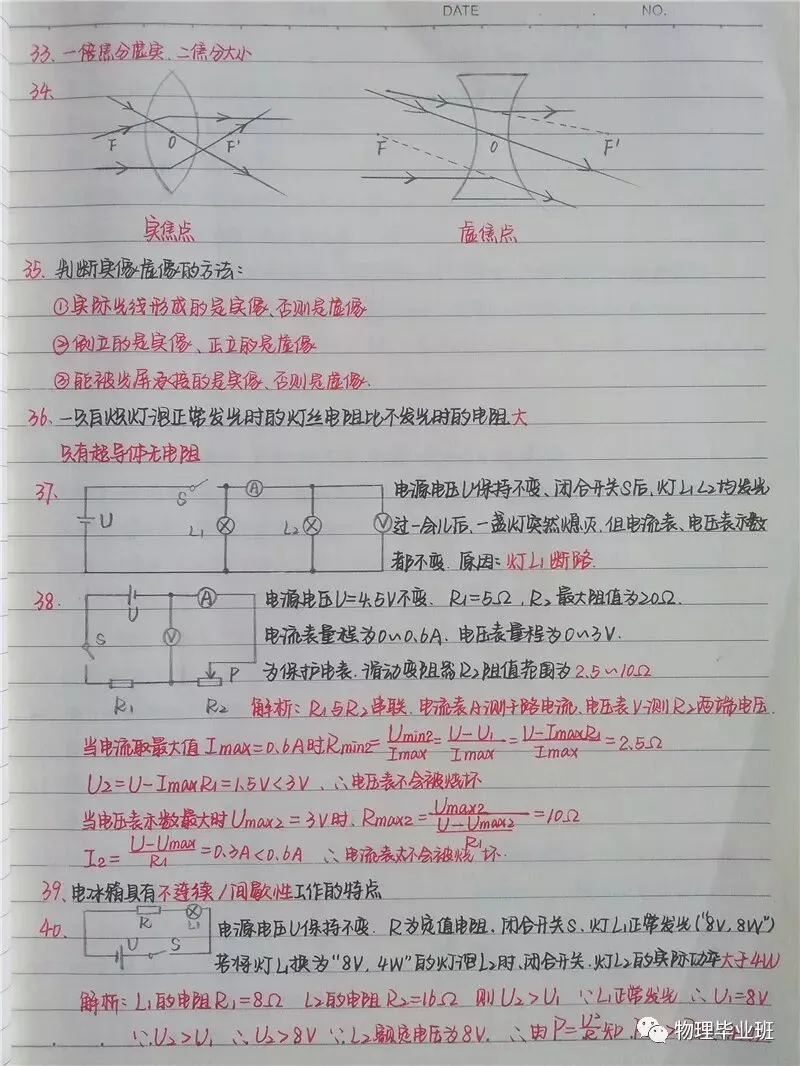 DATE NO.
33. 一倍焦分虚实、二焦分大小
34.
F O F'
F O F'
实焦点 虚焦点
35. 判断实像虚像的方法:
①实际光线形成的是实像、否则是虚像
②倒立的是实像、正立的是虚像
③能被光屏承接的是实像、否则是虚像.
36. 一只白炽灯泡正常发光时的灯丝电阻比不发光时的电阻大
只有超导体无电阻
37. U S L1 A L2 V
电源电压U保持不变、闭合开关S后,灯L1L2均发光
过一会儿后,一盏灯突然熄灭,但电流表、电压表示数
都不变. 原因:灯L1断路.
38. U A V S R1 R2 P
电源电压U=4.5V不变. R1=5Ω, R2最大阻值为20Ω.
电流表量程为0~0.6A. 电压表量程为0~3V.
为保护电表.滑动变阻器R2阻值范围为2.5~10Ω
解析:R1与R2串联.电流表A测干路电流,电压表V测R2两端电压.
当电流取最大值Imax=0.6A时Rmin2=Umin2/Imax=U-U1/Imax=U-ImaxR1/Imax=2.5Ω
U2=U-ImaxR1=1.5V<3V, ∴电压表不会被烧坏
当电压表示数最大时Umax2=3V时, Rmax2=Umax2/U-Umax2/R1=10Ω
I2=U-Umax/R1=0.3A<0.6A ∴电流表不会被烧坏.
39. 电冰箱具有不连续/间歇性工作的特点
40. R L1 U S
电源电压U保持不变. R为定值电阻,闭合开关S,灯L1正常发光("8V,8W")
若将灯L1换为"8V,4W"的灯泡L2时、闭合开关,灯L2的实际功率大于4W
解析:L1的电阻R1=8Ω L2的电阻R2=16Ω 则U2>U1 ∵L1正常发光 ∴U1=8V
∵U2>U1 ∴U2>8V ∵L2额定电压为8V. ∴由P=U²/R知
物理毕业班